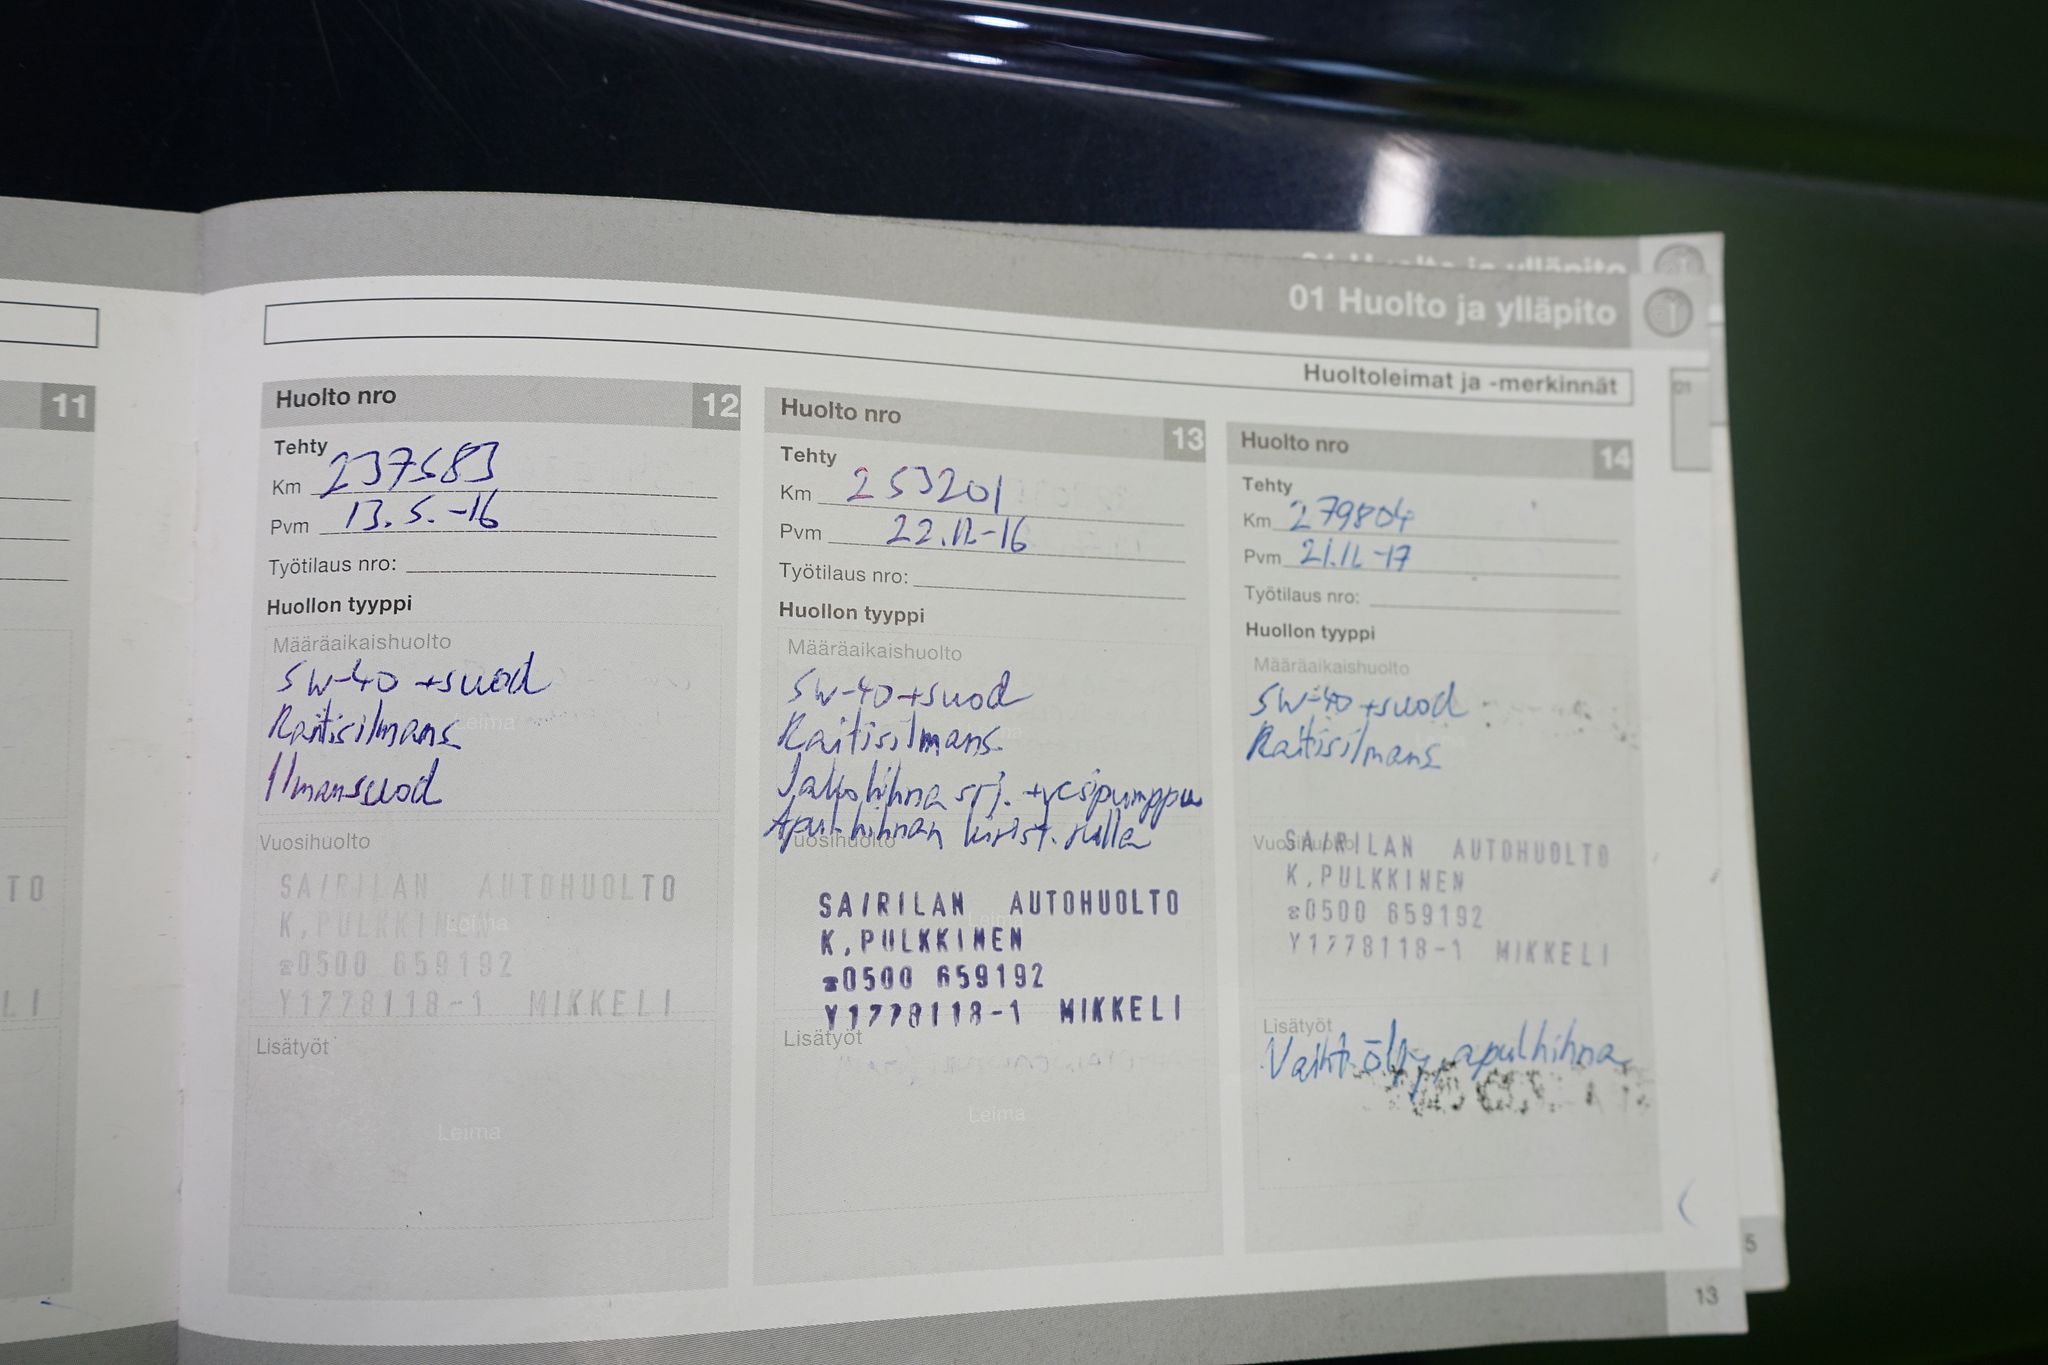 01 Huolto ja ylläpito
01 Huolto ja ylläpito
Huoltoleimat ja -merkinnät
01
11
TO
LI
Huolto nro 12
Tehty
Km 237583
Pvm 13.5.-16
Työtilaus nro:
Huollon tyyppi
Määräaikaishuolto
5W-40 +suod
Leima
Raitisilmans
Ilmansuod
Vuosihuolto
SAIRILAN AUTOHUOLTO
K.PULKKINEN
Leima
☎0500 659192
Y1778118-1 MIKKELI
Lisätyöt
Leima
Huolto nro 13
Tehty
Km 253201
Pvm 22.11.-16
Työtilaus nro:
Huollon tyyppi
Määräaikaishuolto
5W-40 +suod
Raitisilmans.
Jakohihna srj. +vesipumppu
Apul.hihnan kirist. rulla
Vuosihuolto
SAIRILAN AUTOHUOLTO
Leima
K.PULKKINEN
☎0500 659192
Y1778118-1 MIKKELI
Lisätyöt
Leima
Huolto nro 14
Tehty
Km 279804
Pvm 21.11.-17
Työtilaus nro:
Huollon tyyppi
Määräaikaishuolto
5W-40 +suod
Raitisilmans
Vuosihuolto
SAIRILAN AUTOHUOLTO
K.PULKKINEN
☎0500 659192
Y1778118-1 MIKKELI
Lisätyöt
Vaiht.öljy, apul.hihna
5
13